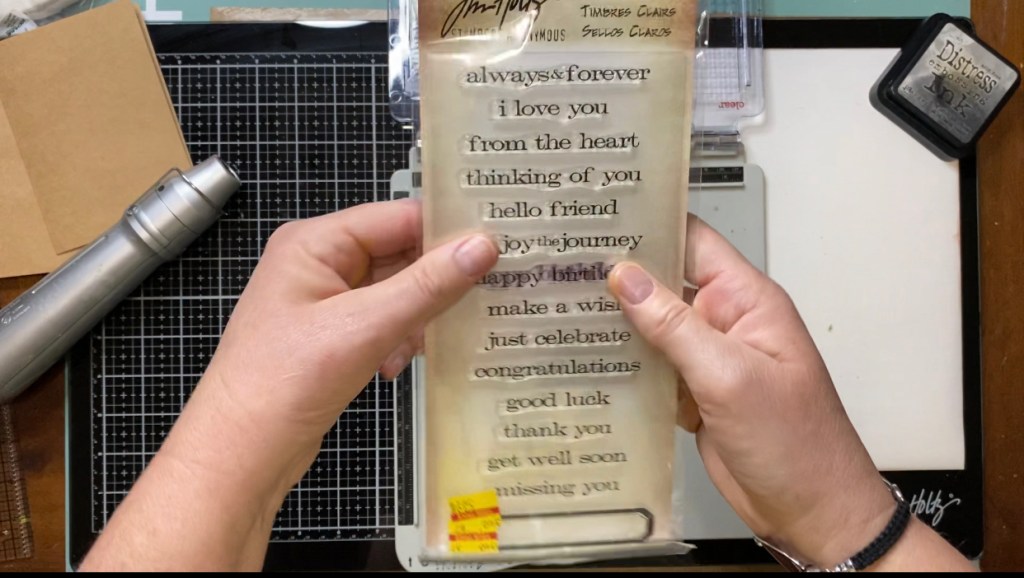 Tim Holtz
TIMBRES CLAIRS
SELLOS CLAROS
always&forever
i love you
from the heart
thinking of you
hello friend
joy the journey
happy
make a wish
just celebrate
congratulations
good luck
thank you
get well soon
missing you
clear
Distress
Ink
Holtz